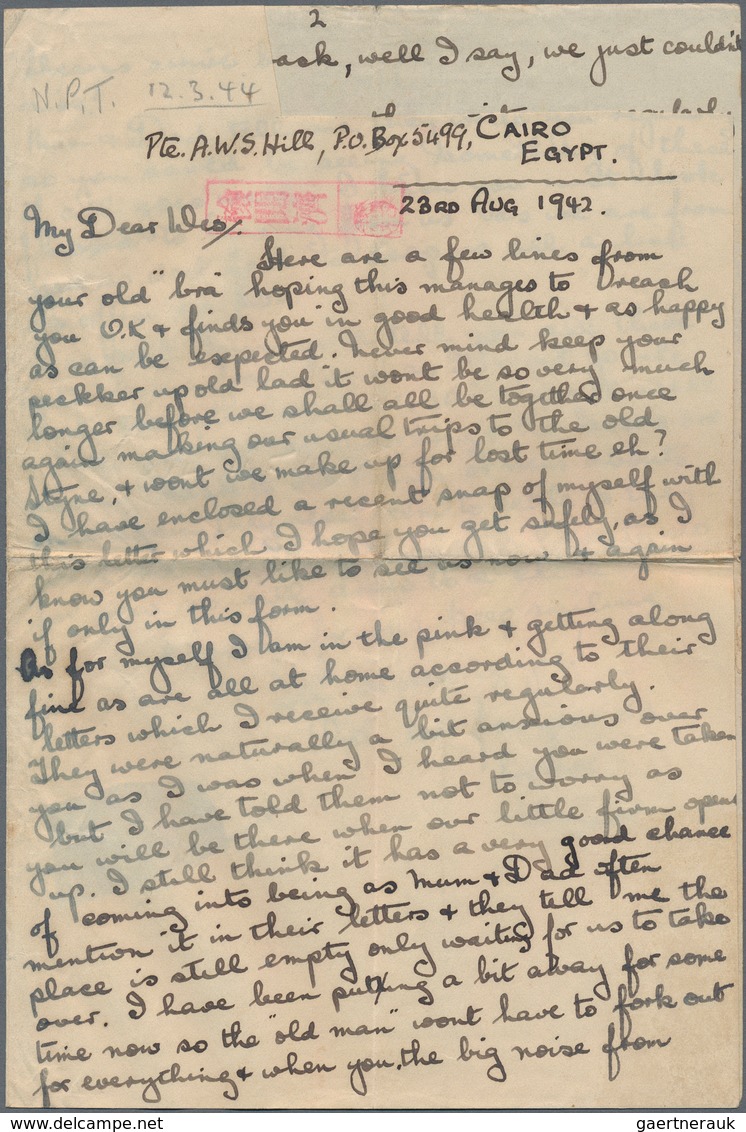 2
ask, well I say, we just couldn't
N.P.T. 12.3.44
Pte. A.W.S. Hill, P.O. Box 5499, CAIRO
EGYPT.
23RD AUG 1942.
My Dear
Here are a few lines from
your old "bra" hoping this manages to reach
you O.K & finds you in good health & as happy
as can be expected. Never mind keep your
peckker up old lad it wont be so very much
longer before we shall all be together once
again making our usual trips to the old
Styne, & wont we make up for lost time eh?
I have enclosed a recent snap of myself with
this letter which I hope you get safely, as I
know you must like to see us now & again
if only in this form.
As for myself I am in the pink & getting along
fine as are all at home according to their
letters which I receive quite regularly.
They were naturally a bit anxious over
you as I was when I heard you were taken
but I have told them not to worry as
you will be there when our little firm opens
up. I still think it has a very good chance
of coming into being as Mum & Dad often
mention it in their letters & they tell me the
place is still empty only waiting for us to take
over. I have been putting a bit away for some
time now so the "old man" wont have to fork out
for everything & when you, the big noise from
gaertnerauk